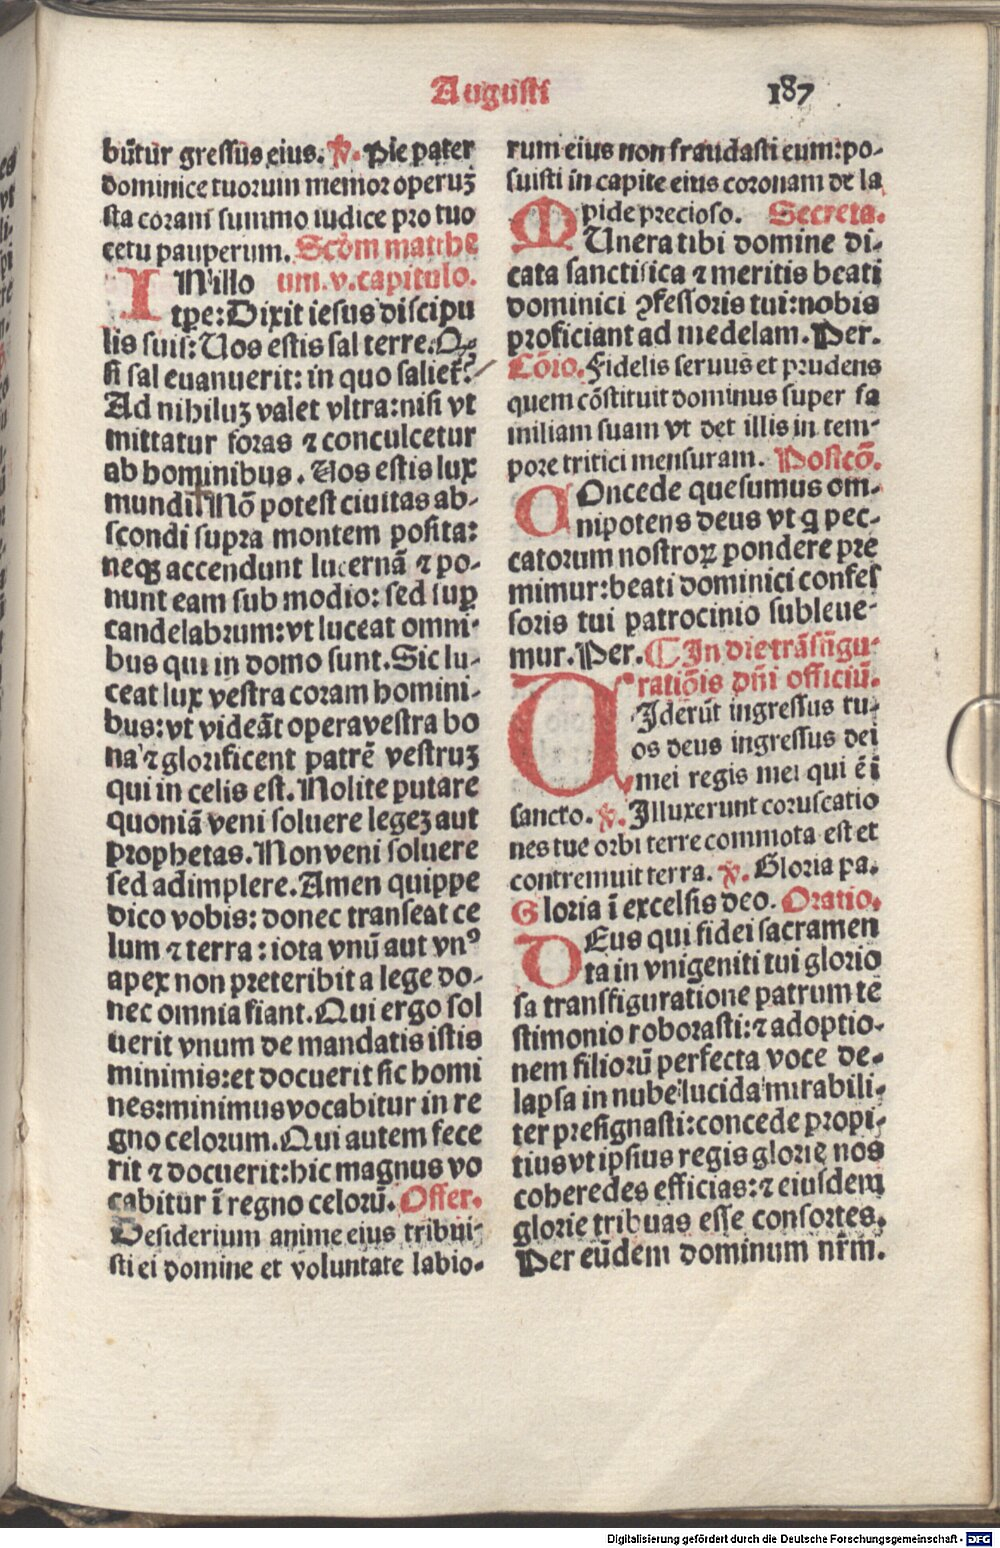 Augusti 187
būtur gressus eius. ꝟ. Pie pater
dominice tuorum memor operuꝫ
sta coram summo iudice pro tuo
cetu pauperum. Scḋm matthe
IN illo um.v.capitulo.
tꝑe: Dixit iesus discipu
lis suis: Uos estis sal terre. Qꝫ
si sal euanuerit: in quo saliet̃?
Ad nihiluꝫ valet vltra: nisi vt
mittatur foras ⁊ conculcetur
ab hominibus. Uos estis lux
mundi. Nō potest ciuitas ab-
scondi supra montem posita:
neqꝫ accendunt lucernā ⁊ po-
nunt eam sub modio: sed suꝑ
candelabrum: vt luceat omni-
bus qui in domo sunt. Sic lu-
ceat lux vestra coram homini-
bus: vt videāt opera vestra bo
na ⁊ glorificent patrē vestruꝫ
qui in celis est. Nolite putare
quoniā veni soluere legeꝫ aut
prophetas. Non veni soluere
sed adimplere. Amen quippe
dico vobis: donec transeat ce
lum ⁊ terra: iota vnū aut vnꝰ
apex non preteribit a lege do-
nec omnia fiant. Qui ergo sol
uerit vnum de mandatis istis
minimis: et docuerit sic homi
nes: minimus vocabitur in re
gno celorum. Qui autem fece
rit ⁊ docuerit: hic magnus vo
cabitur ī regno celorū. Offer.
Desiderium anime eius tribui-
sti ei domine et voluntate labio-
rum eius non fraudasti eum: po-
suisti in capite eius coronam de la
pide precioso. Secreta.
MUnera tibi domine di-
cata sanctifica ⁊ meritis beati
dominici ꝯfessoris tui: nobis
proficiant ad medelam. Per.
Cōio. Fidelis seruus et prudens
quem cōstituit dominus super fa
miliam suam vt det illis in tem-
pore tritici mensuram. Postcō.
COncede quesumus om-
nipotens deus vt q pec-
catorum nostroꝝ pondere pre
mimur: beati dominici confes
soris tui patrocinio subleue-
mur. Per. ¶ In die trāsfigu-
ratiōis dn̄i officiū.
UIderūt ingressus tu-
os deus ingressus dei
mei regis mei qui ē ī
sancto. ꝟ. Illuxerunt coruscatio
nes tue orbi terre commota est et
contremuit terra. ꝟ. Gloria pa.
Gloria ī excelsis deo. Oratio.
DEus qui fidei sacramen
ta in vnigeniti tui glorio
sa transfiguratione patrum te
stimonio roborasti: ⁊ adoptio-
nem filiorū perfecta voce de-
lapsa in nube lucida mirabili-
ter presignasti: concede propi-
tius vt ipsius regis glorie nos
coheredes efficias: ⁊ eiusdem
glorie tribuas esse consortes.
Per eūdem dominum nr̄m.
Digitalisierung gefördert durch die Deutsche Forschungsgemeinschaft - DFG